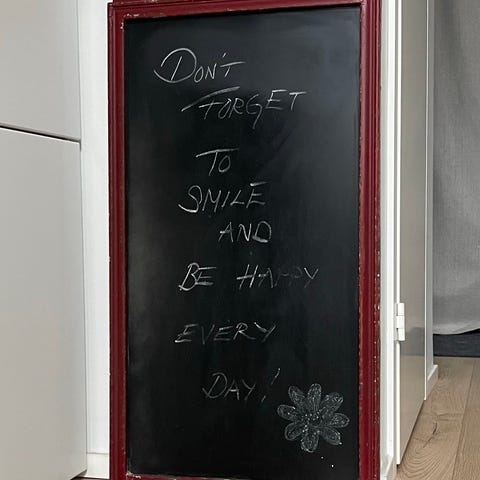 DON'T
FORGET
TO
SMILE
AND
BE HAPPY
EVERY
DAY!